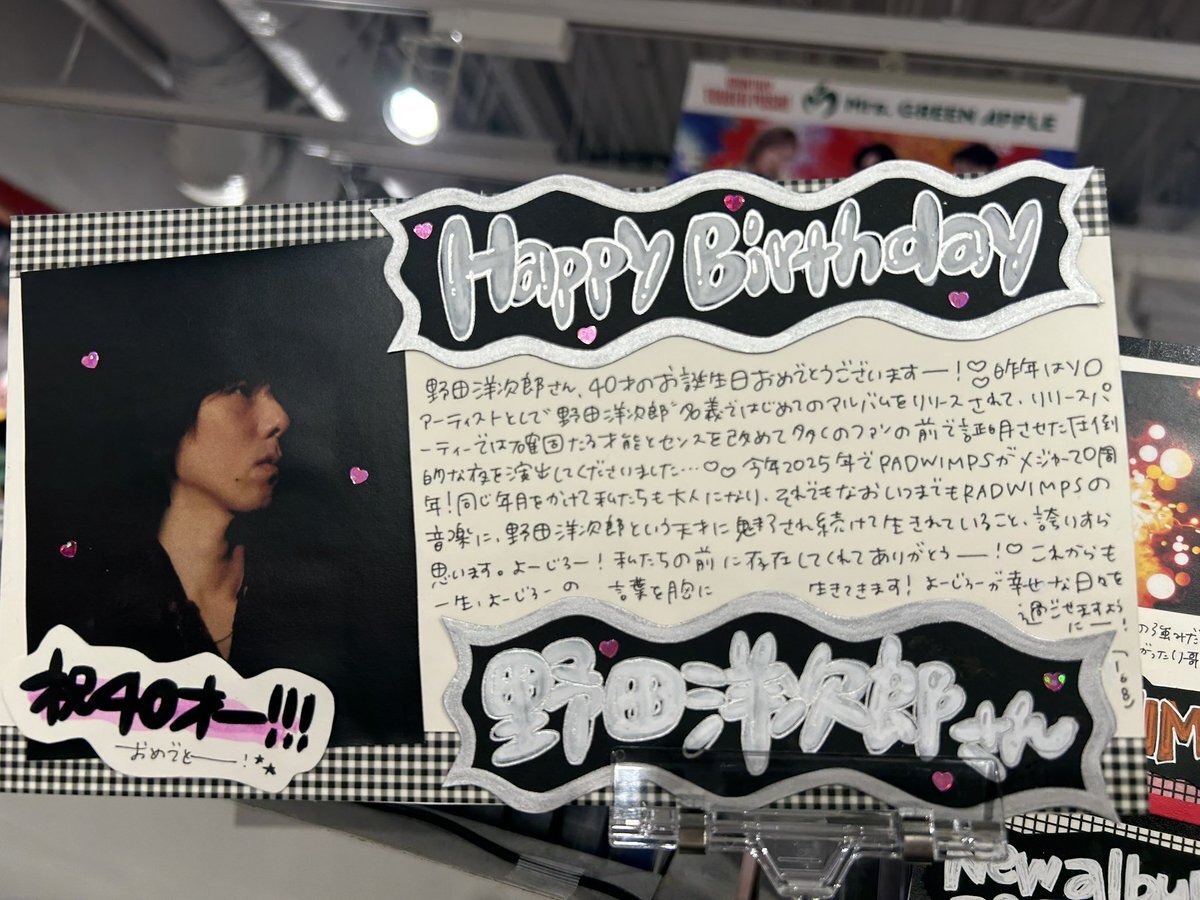 Mrs. GREEN APPLE
Happy Birthday
野田洋次郎さん、40才のお誕生日おめでとうございますー!♡昨年はソロ
アーティストとして"野田洋次郎"名義ではじめてのアルバムをリリースされて、リリースパ
ーティーでは確固たる才能とセンスを改めて多くのファンの前で証明させた圧倒
的な夜を演出してくださいました…♡♡ 今年2025年でRADWIMPSがメジャー20周
年!同じ年月をかけて私たちも大人になり、それでもなおいつまでもRADWIMPSの
音楽に、野田洋次郎という天才に魅了され続けて生きれていること、誇りすら
思います。よーじろー!私たちの前に存在してくれてありがとうー!♡ これからも
一生、よーじろーの 言葉を胸に 生きてきます!よーじろーが幸せな日々を
過ごせますよう
にー!
祝40才ー!!!
おめでとー!
野田洋次郎さん
New albu